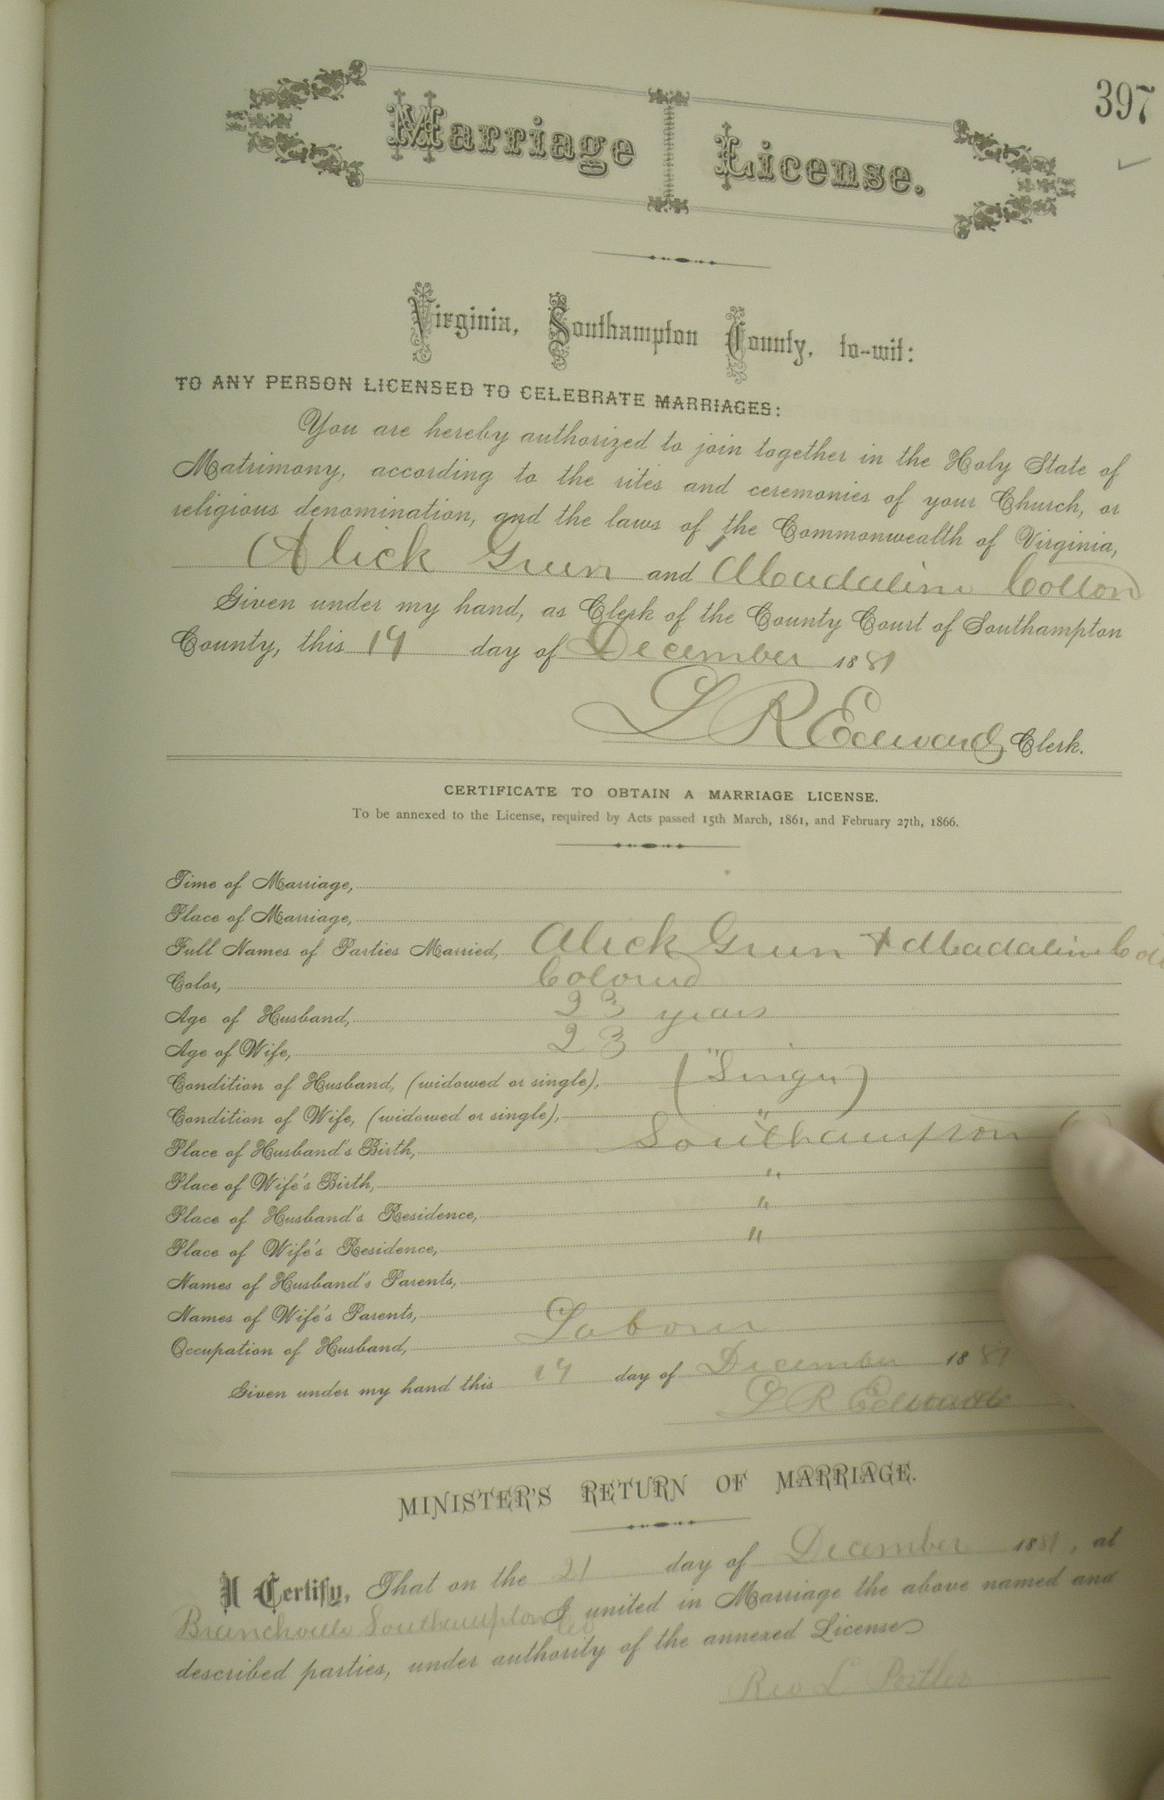 397
Marriage License.
Virginia, Southampton County, to-wit:
TO ANY PERSON LICENSED TO CELEBRATE MARRIAGES:
You are hereby authorized to join together in the Holy State of
Matrimony, according to the rites and ceremonies of your Church, or
religious denomination, and the laws of the Commonwealth of Virginia,
Alick Green and Madaline Cotton
Given under my hand, as Clerk of the County Court of Southampton
County, this 19 day of December 1881
L R Edwards Clerk.
CERTIFICATE TO OBTAIN A MARRIAGE LICENSE.
To be annexed to the License, required by Acts passed 15th March, 1861, and February 27th, 1866.
Time of Marriage,
Place of Marriage,
Full Names of Parties Married, Alick Green + Madaline
Color, Colored
Age of Husband, 23 years
Age of Wife, 23 "
Condition of Husband, (widowed or single), (Single)
Condition of Wife, (widowed or single), "
Place of Husband's Birth, Southampton
Place of Wife's Birth, "
Place of Husband's Residence, "
Place of Wife's Residence, "
Names of Husband's Parents,
Names of Wife's Parents,
Occupation of Husband, Laborer
Given under my hand this 19 day of December 1881
L R Edwards
MINISTER'S RETURN OF MARRIAGE.
I Certify, That on the 21 day of December 1881, at
Branchville Southampton Co I united in Marriage the above named and
described parties, under authority of the annexed License
Rev L